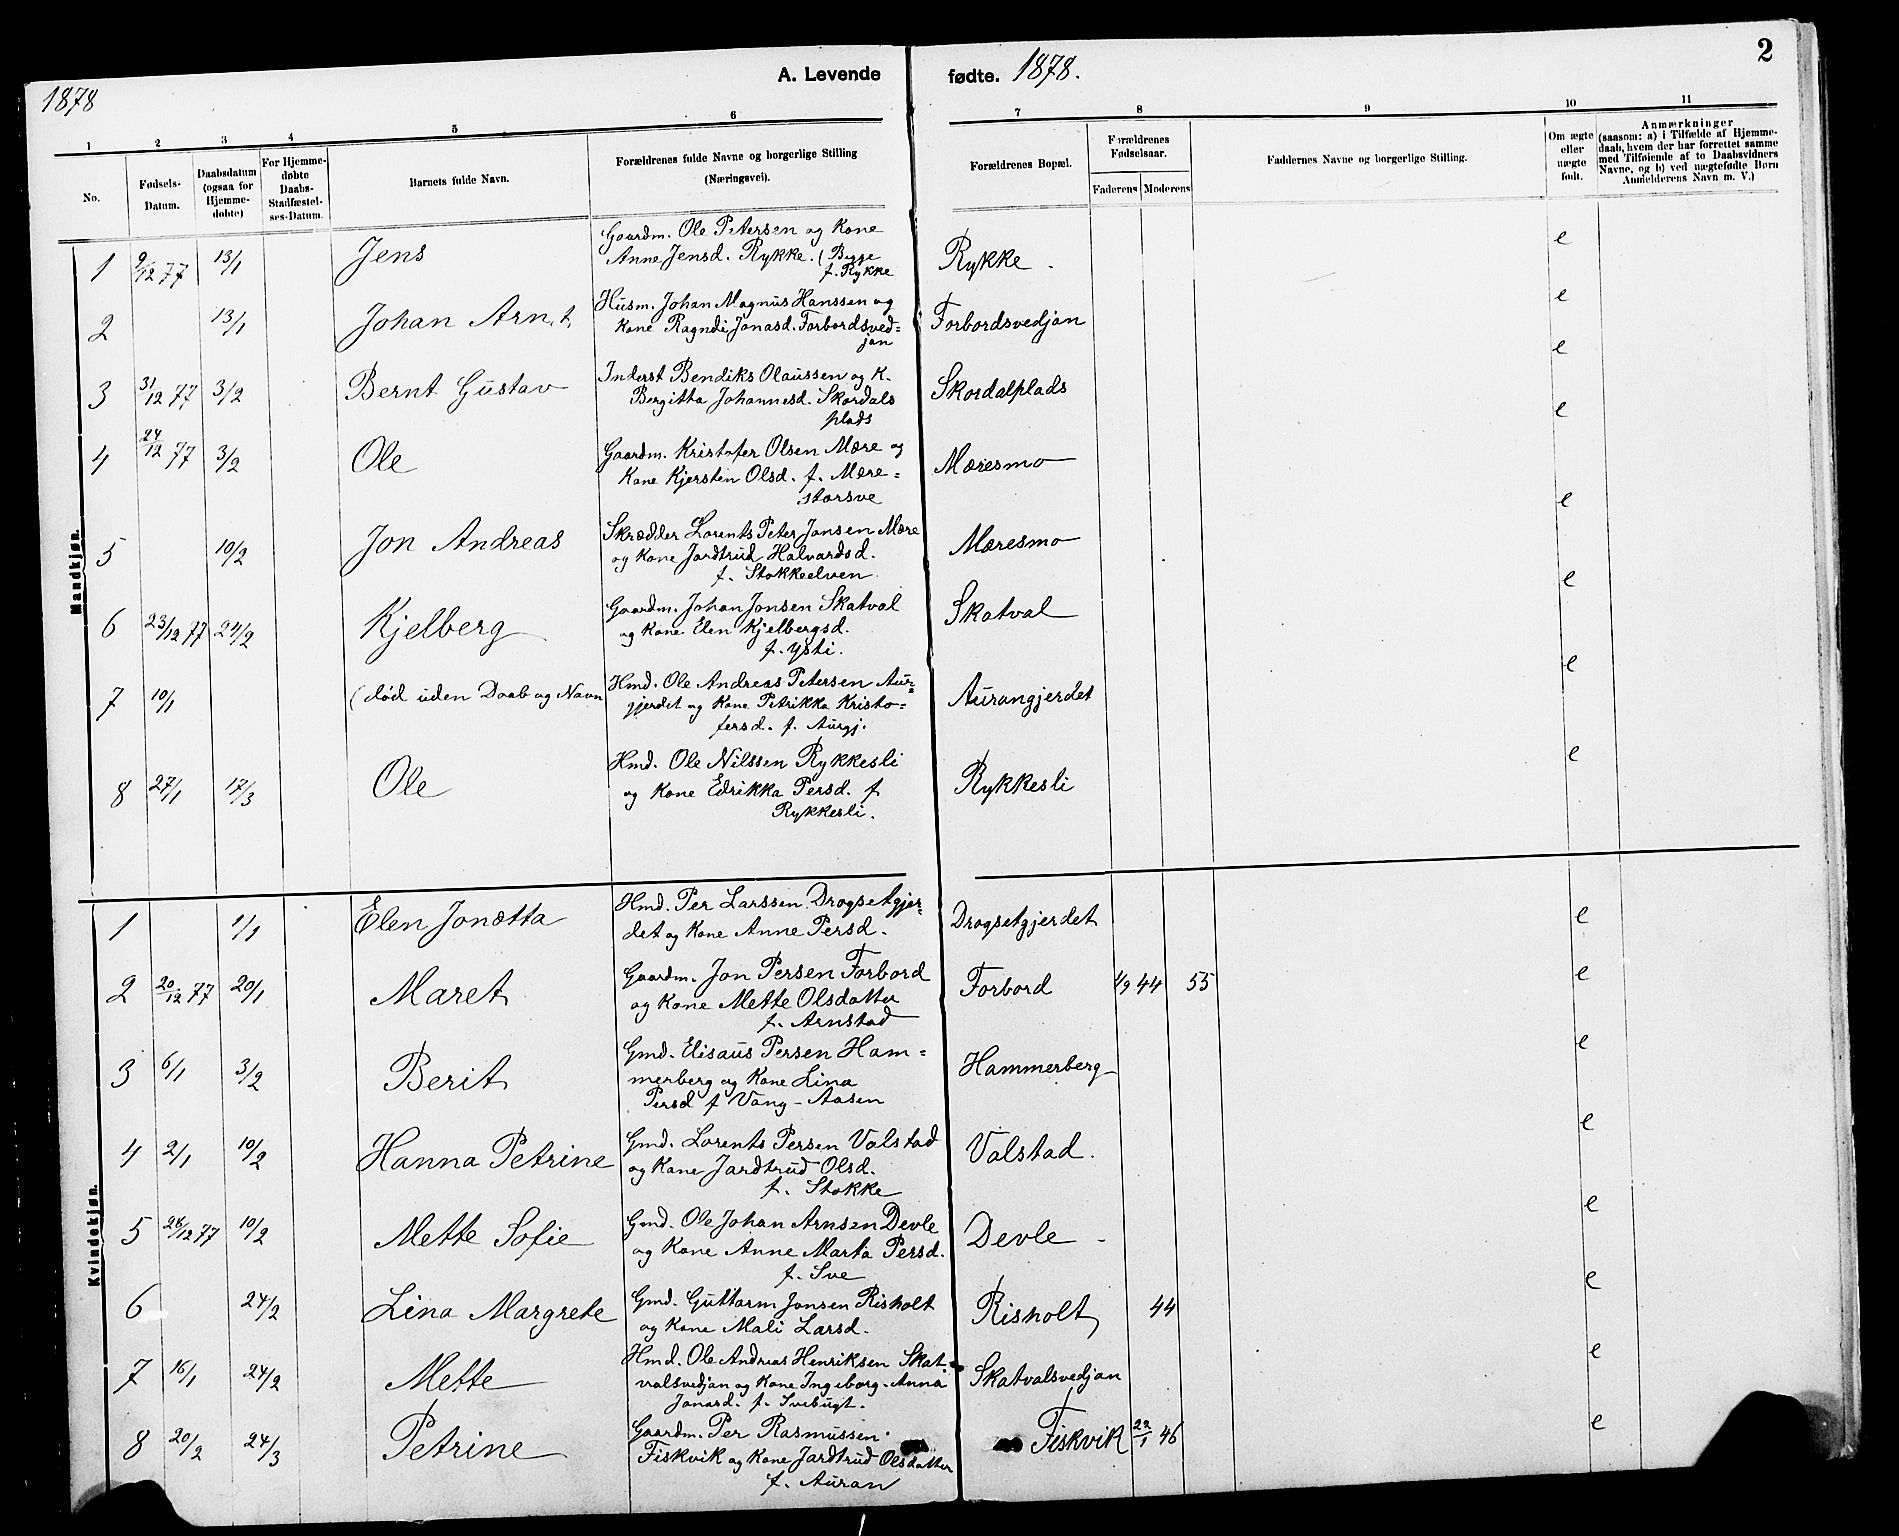 1878
A. Levende
fødte. 1878.
2
1 2 3 4 5 6 7 8 9 10 11
No.
Fødsels-
Datum.
Daabsdatum
(ogsaa for
Hjemme-
døbte)
For Hjemme-
døbte
Daabs-
Stadfæstel-
ses-Datum.
Barnets fulde Navn.
Forældrenes fulde Navne og borgerlige Stilling
(Næringsvei).
Forældrenes Bopæl.
Forældrenes
Fødselsaar.
Faderens Moderens
Faddernes Navne og borgerlige Stilling.
Om ægte
eller
uægte
født.
Anmærkninger
(saasom: a) i Tilfælde af Hjemme-
daab, hvem der har forrettet samme
med Tilføiende af to Daabsvidners
Navne, og b) ved uægtefødte Børn
Anmelderens Navn m. V.)
Mandkjøn.
1 9/12 77 13/1 Jens
Gaardm. Ole Petersen og Kone
Anne Jensd. Rykke. (Bygge
f. Rykke
Rykke. e
2 13/1 Johan Arnt
Husm. Johan Magnus Hanssen og
Kone Ragndi Jonasd. Forbordsved=
jan
Forbordsvedjan e
3 31/12 77 3/2 Bernt Gustav
Inderst Bendiks Olaussen og K.
Bergitta Johannesd. Skordals
plads
Skordalplads e
4 24/12 77 3/2 Ole
Gaardm. Kristofer Olsen Mære og
Kone Kjersten Olsd. f. Mære=
storsve
Mæresmo e
5 10/2 Jon Andreas
Skrædder Lorents Peter Jonsen Mære
og Kone Jardtrud Halvardsd.
f. Stokkeelven.
Mæresmo e
6 23/12 77 24/2 Kjelberg
Gaardm. Johan Jonsen Skatval
og Kone Elen Kjelbergsd.
f. Ysti.
Skatval e
7 10/1 (død uden Daab og Navn
Hmd. Ole Andreas Petersen Aur=
gjerdet og Kone Petrikka Kristo=
fersd. f. Aurgj.
Aurangjerdet e
8 27/1 17/3 Ole
Hmd. Ole Nilssen Rykkesli
og Kone Edrikka Persd. f
Rykkesli.
Rykkesli e
Kvindekjøn.
1 1/1 Elen Jonetta
Hmd. Per Larssen Drogsetgjer-
det og Kone Anne Persd.
Drogsetgjerdet e
2 20/12 77 20/1 Maret
Gaardm. Jon Persen Forbord
og Kone Mette Olsdatter
f. Arnstad
Forbord 1/9 44 55 e
3 6/1 3/2 Berit
Gmd. Elisaus Persen Ham=
merberg og Kone Lina
Persd f Vang-Aasen
Hammerberg e
4 2/1 10/2 Hanna Petrine
Gmd. Lorents Persen Valstad
og Kone Jardtrud Olsd.
f. Stokke
Valstad. e
5 28/12 77 10/2 Mette Sofie
Gmd. Ole Johan Arnsen Devle
og Kone Anne Marta Persd.
f. Sve
Devle - e
6 24/2 Lina Margrete
Gmd. Guttorm Jonsen Risholt
og Kone Mali Larsd.
Risholt 44 e
7 16/1 24/2 Mette
Hmd. Ole Andreas Henriksen Skat-
valsvedjan og Kone Ingeborg-Anna
Jonasd. f. Svebugt.
Skatvalsvedjan e
8 20/2 24/3 Petrine
Gaardm. Per Rasmussen
Fiskvik og Kone Jardtrud Olsdatter
f. Auran
Fiskvik 22/1 46 e